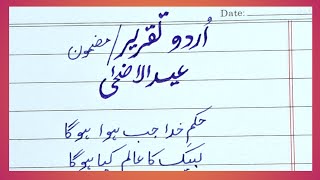 Date:
اُردو تقریر/مضمون
عیدالاضحٰی
حکمِ خدا جب ہوا ہوگا
لبیک کا عالم کیا ہوگا